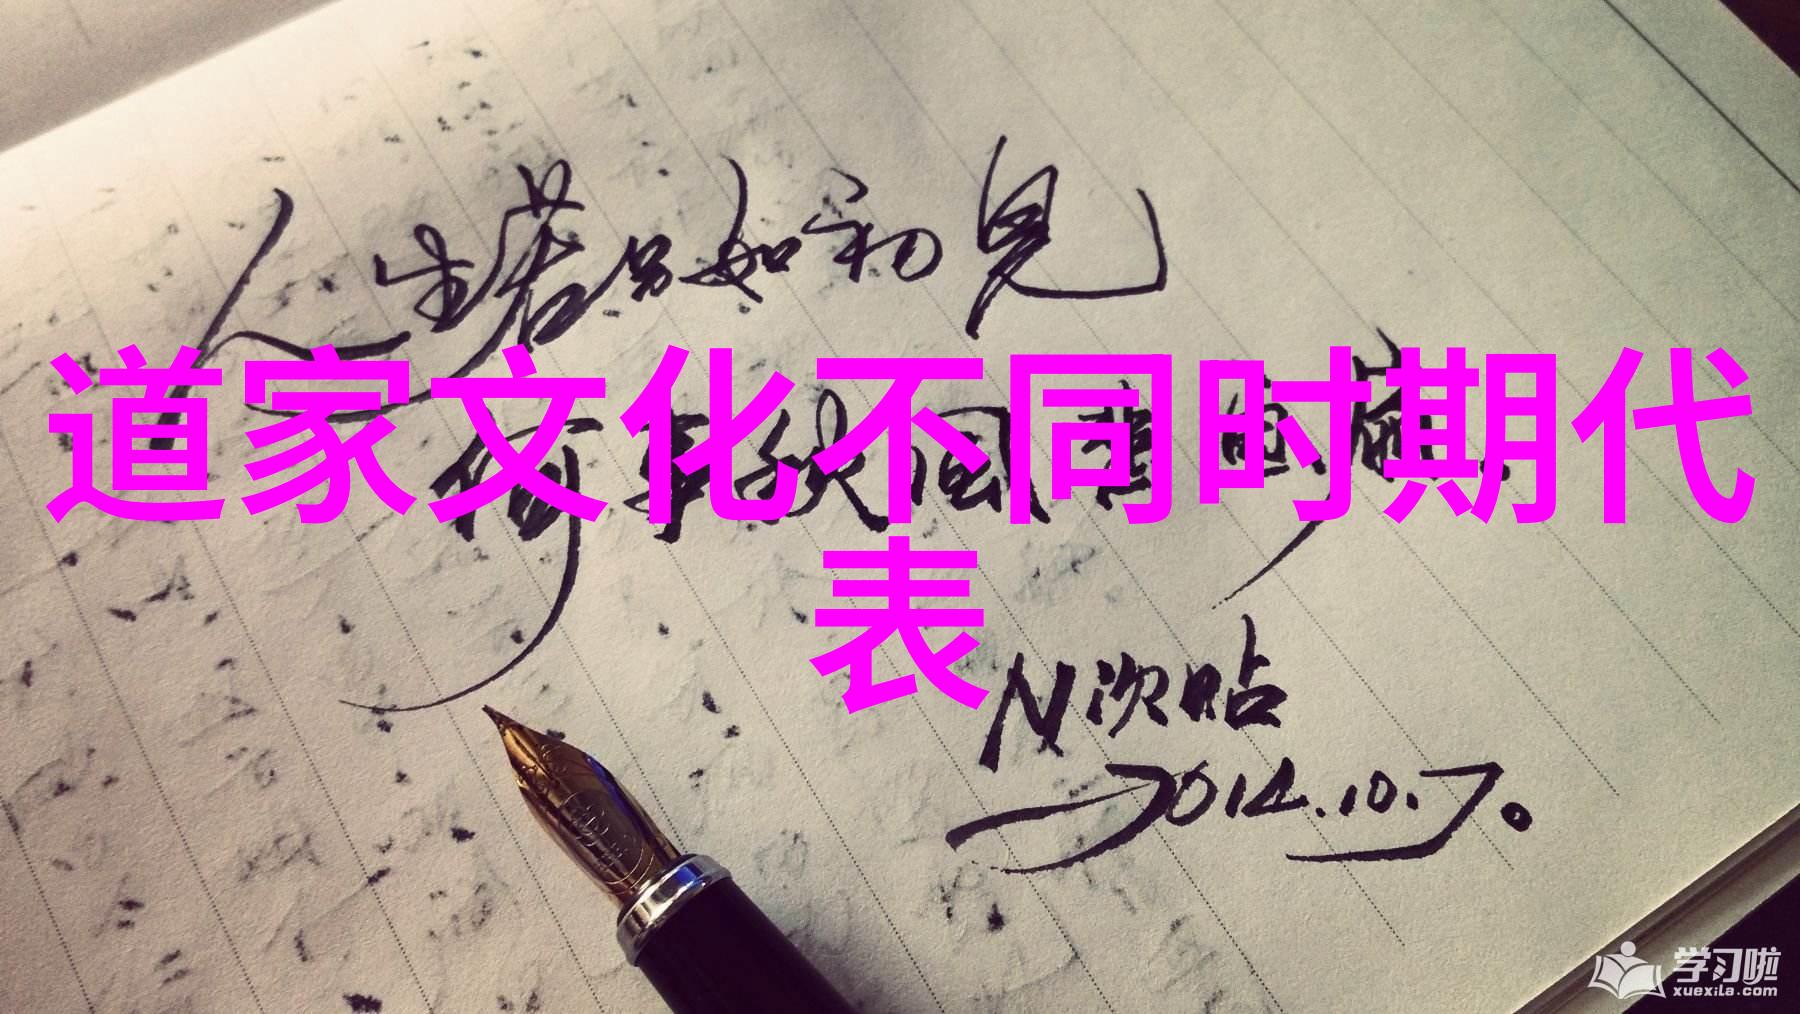 人生若只如初见
道家文化不同时期代
何事秋风悲画扇.
表
N次贴
2014.10.7。
学习啦
xuexila.com